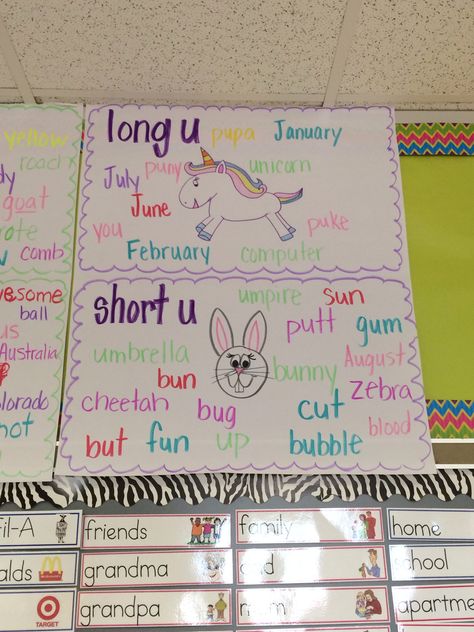 yellow
roach
goat
comb
ball
Australia
long u
pupa
January
puny
unicorn
July
June
you
puke
February
computer
short u
umpire
sun
putt
gum
umbrella
August
bun
bunny
zebra
cheetah
bug
cut
blood
but
fun
up
bubble
fil-A
friends
family
home
alds
grandma
school
TARGET
grandpa